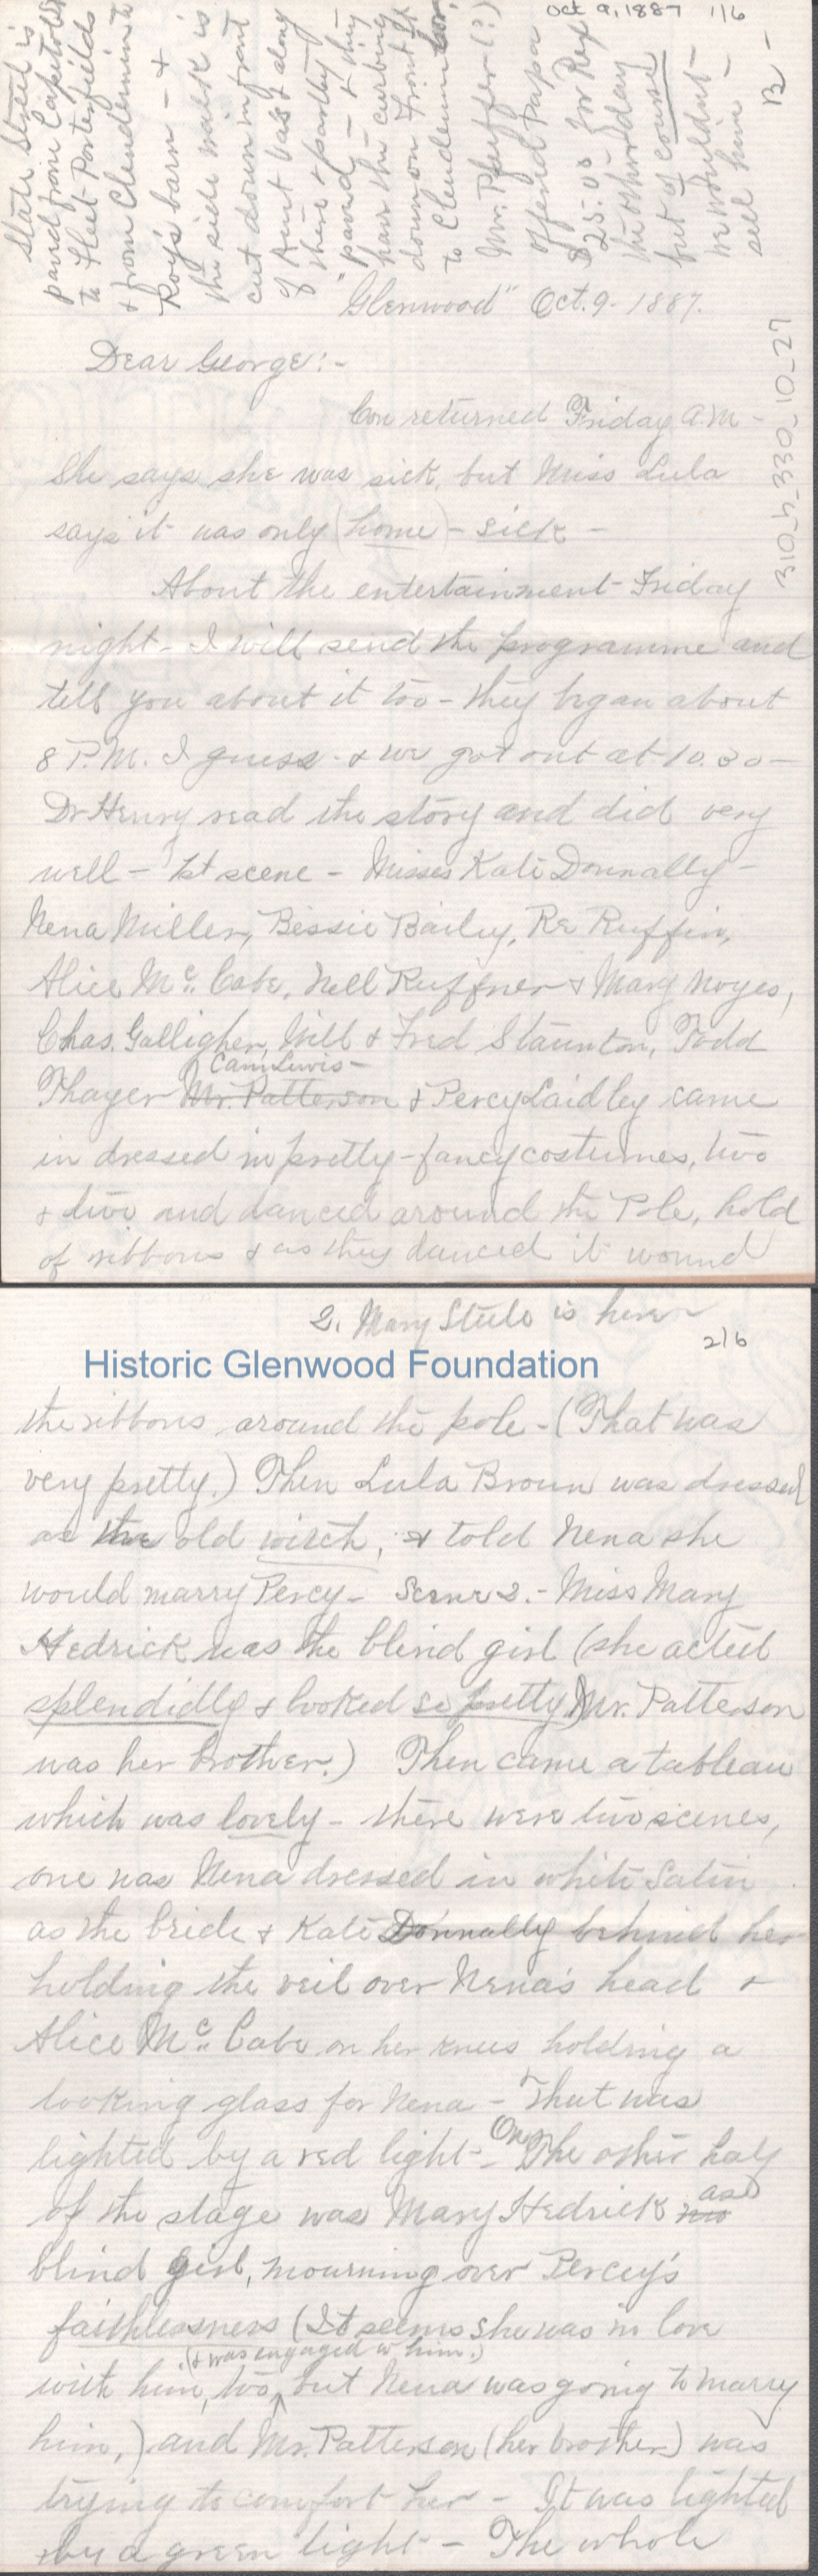 Oct 9, 1887 1/6
State Street is
paved from Capitol St
to Fleet Porterfields
& from Clendennin to
Roy's barn - &
the side walk is
cut down in front
of Aunt Vas & along
there & partly
paved - & they
have the curbing
down on Front St
to Clendennin
Mr. Pfeiffer (?)
offered Papa
$25.00 for Rex
the other day
but of course
we wouldnt
sell him -
B -
310_h_330_10_27
"Glenwood" Oct. 9. 1887.
Dear George:-
Con returned Friday A.M -
She says she was sick, but Miss Lula
says it was only (home) - sick -
About the entertainment Friday
night - I will send the programme and
tell you about it too - they began about
8 P.M. I guess - & we got out at 10.30 -
Dr Henry read the story and did very
well - 1st scene - Misses Kate Donnally -
Nena Miller, Bessie Baily, Re Ruffin,
Alice Mc. Cabe, Nell Ruffner & Mary Noyes,
Chas. Galligher, Will & Fred Staunton, Todd
Cam Lewis -
Thayer Mr. Patterson & Percy Laidley came
in dressed in pretty - fancy costumes, two
& two and danced around the Pole, hold
of ribbons & as they danced it wound
2. Mary Steele is here -
2/6
Historic Glenwood Foundation
the ribbons around the pole - (That was
very pretty.) Then Lula Brown was dressed
as the old witch, & told Nena she
would marry Percy - Scene 2. - Miss Mary
Hedrick was the blind girl (she acted
splendidly & looked so pretty) Mr. Patterson
was her brother.) Then came a tableau
which was lovely - there were two scenes,
one was Nena dressed in white satin
as the bride & Kate Donnally behind her
holding the veil over Nena's head &
Alice Mc. Cabe on her knees holding a
looking glass for Nena - That was
lighted by a red light - On The other half
of the stage was Mary Hedrick as
blind girl, mourning over Percy's
faithlessness (It seems she was in love
(& was engaged to him.)
with him, too, but Nena was going to marry
him,) and Mr. Patterson (her brother) was
trying to comfort her - It was lighted
by a green light - The whole